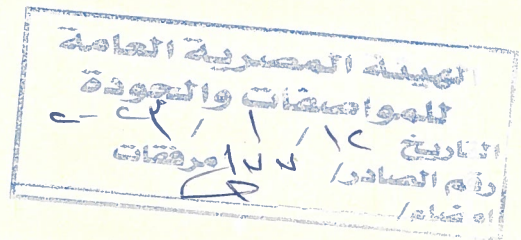 الهيئة المصرية العامة
للمواصفات والجودة
التاريخ ١٢ / ١ /
رقم الصادر / ١٧٧ مرفقات
امضاء /